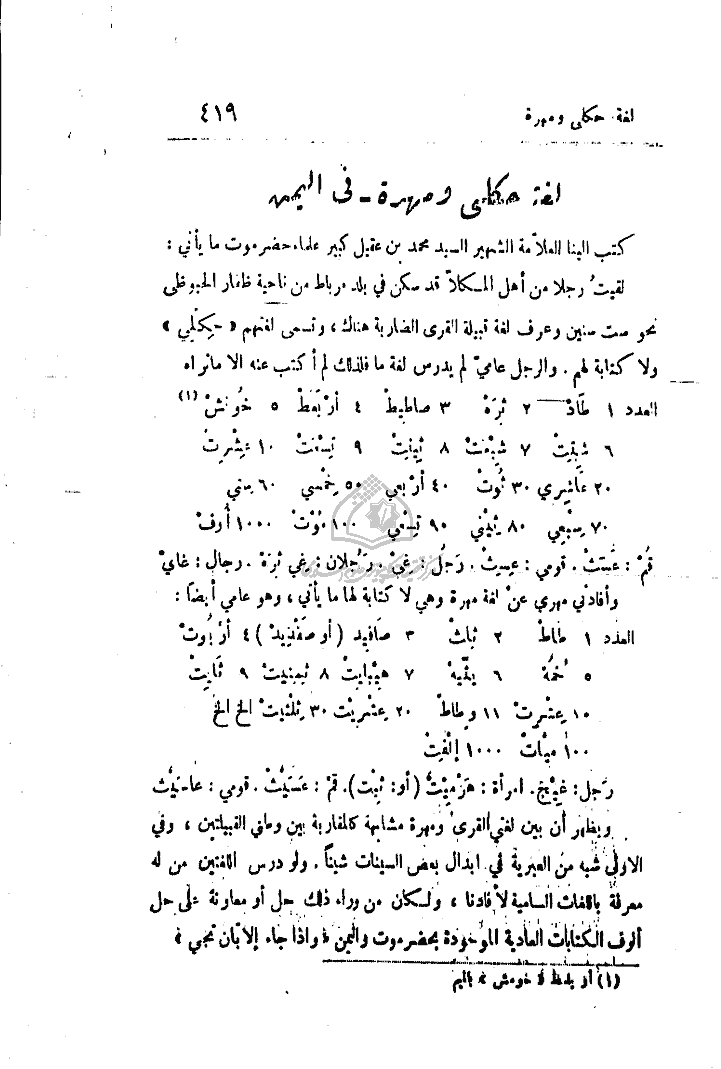 لغة حكلى ومهرة ٤١٩
لغة حكلى ومهرة - فى اليمن
كتب الينا العلاّمة الشهير السيد محمد بن عقيل كبير علماء حضرموت ما يأتي :
لقيتُ رجلا من أهل المكلاّ قد سكن في بلد مرباط من ناحية ظفار الحبوظى
نحو ست سنين وعرف لغة قبيلة القرى الضاربة هناك ، وتسمى لغتهم « حِكْلي »
ولا كتابة لهم . والرجل عاميّ لم يدرس لغة ما فلذلك لم أكتب عنه الا ما تراه
العدد ١ طَادْ ٢ ثِرَهْ ٣ صاطيطْ ٤ أرْبَعَطْ ٥ خُونشْ (١)
٦ شِتِيتْ ٧ شِبْعَتْ ٨ ثِينِتْ ٩ تِسْعَتْ ١٠ عِشِرتْ
٢٠ عَاشِري ٣٠ ثُوتْ ٤٠ أرْبعي ٥٠ خِمْسي ٦٠ سِتي
٧٠ سِبْعي ٨٠ ثِمِنْي ٩٠ تِسْعي ١٠٠ مُوْتْ ١٠٠٠ أُوفْ
قُمْ : عَشَتْ . قومي : عِيشِتْ . رَجُلْ : غِيْ . رَجُلان : غِي ثِرَهْ . رجال : غايْ
وأفادني مهري عن لغة مهرة وهي لا كتابة لها ما يأتي ، وهو عامي أيضاً :
العدد ١ طاطْ ٢ ثِراتْ ٣ صَافيد ( أو صَفْذِيدْ ) ٤ أرْبُوتْ
٥ خُمَّهْ ٦ يِتِّيهْ ٧ هِيبايتْ ٨ ثِمِنيتْ ٩ ثَايِتْ
١٠ عِشرتْ ١١ وطاطْ ٢٠ عِشْريتْ ٣٠ ثِلْثيتْ الخ الخ
١٠٠ مِيّاتْ ١٠٠٠ إلْفيتْ
رَجل : غَيْج . امرأة : هَرْمِيتْ ( أو : تِيْت ) . قمْ : عَسَيُتْ . قومي : عاسَيْتْ
ويظهر أن بين لغتي القرى ومهرة مشابهة كالمقاربة بين وطني القبيلتين ، وفي
الاولى شبه من العبرية في ابدال بعض السينات شيناً . ولو درس اللغتين من له
معرفة باللغات السامية لأفادنا ، ولكان من وراء ذلك حل أو معاونة على حل
ألوف الكتابات العادية الموجودة بحضرموت واليمن ، واذا جاء إلاّبان تجي ء
(١) أو بلفظ خومش بالميم